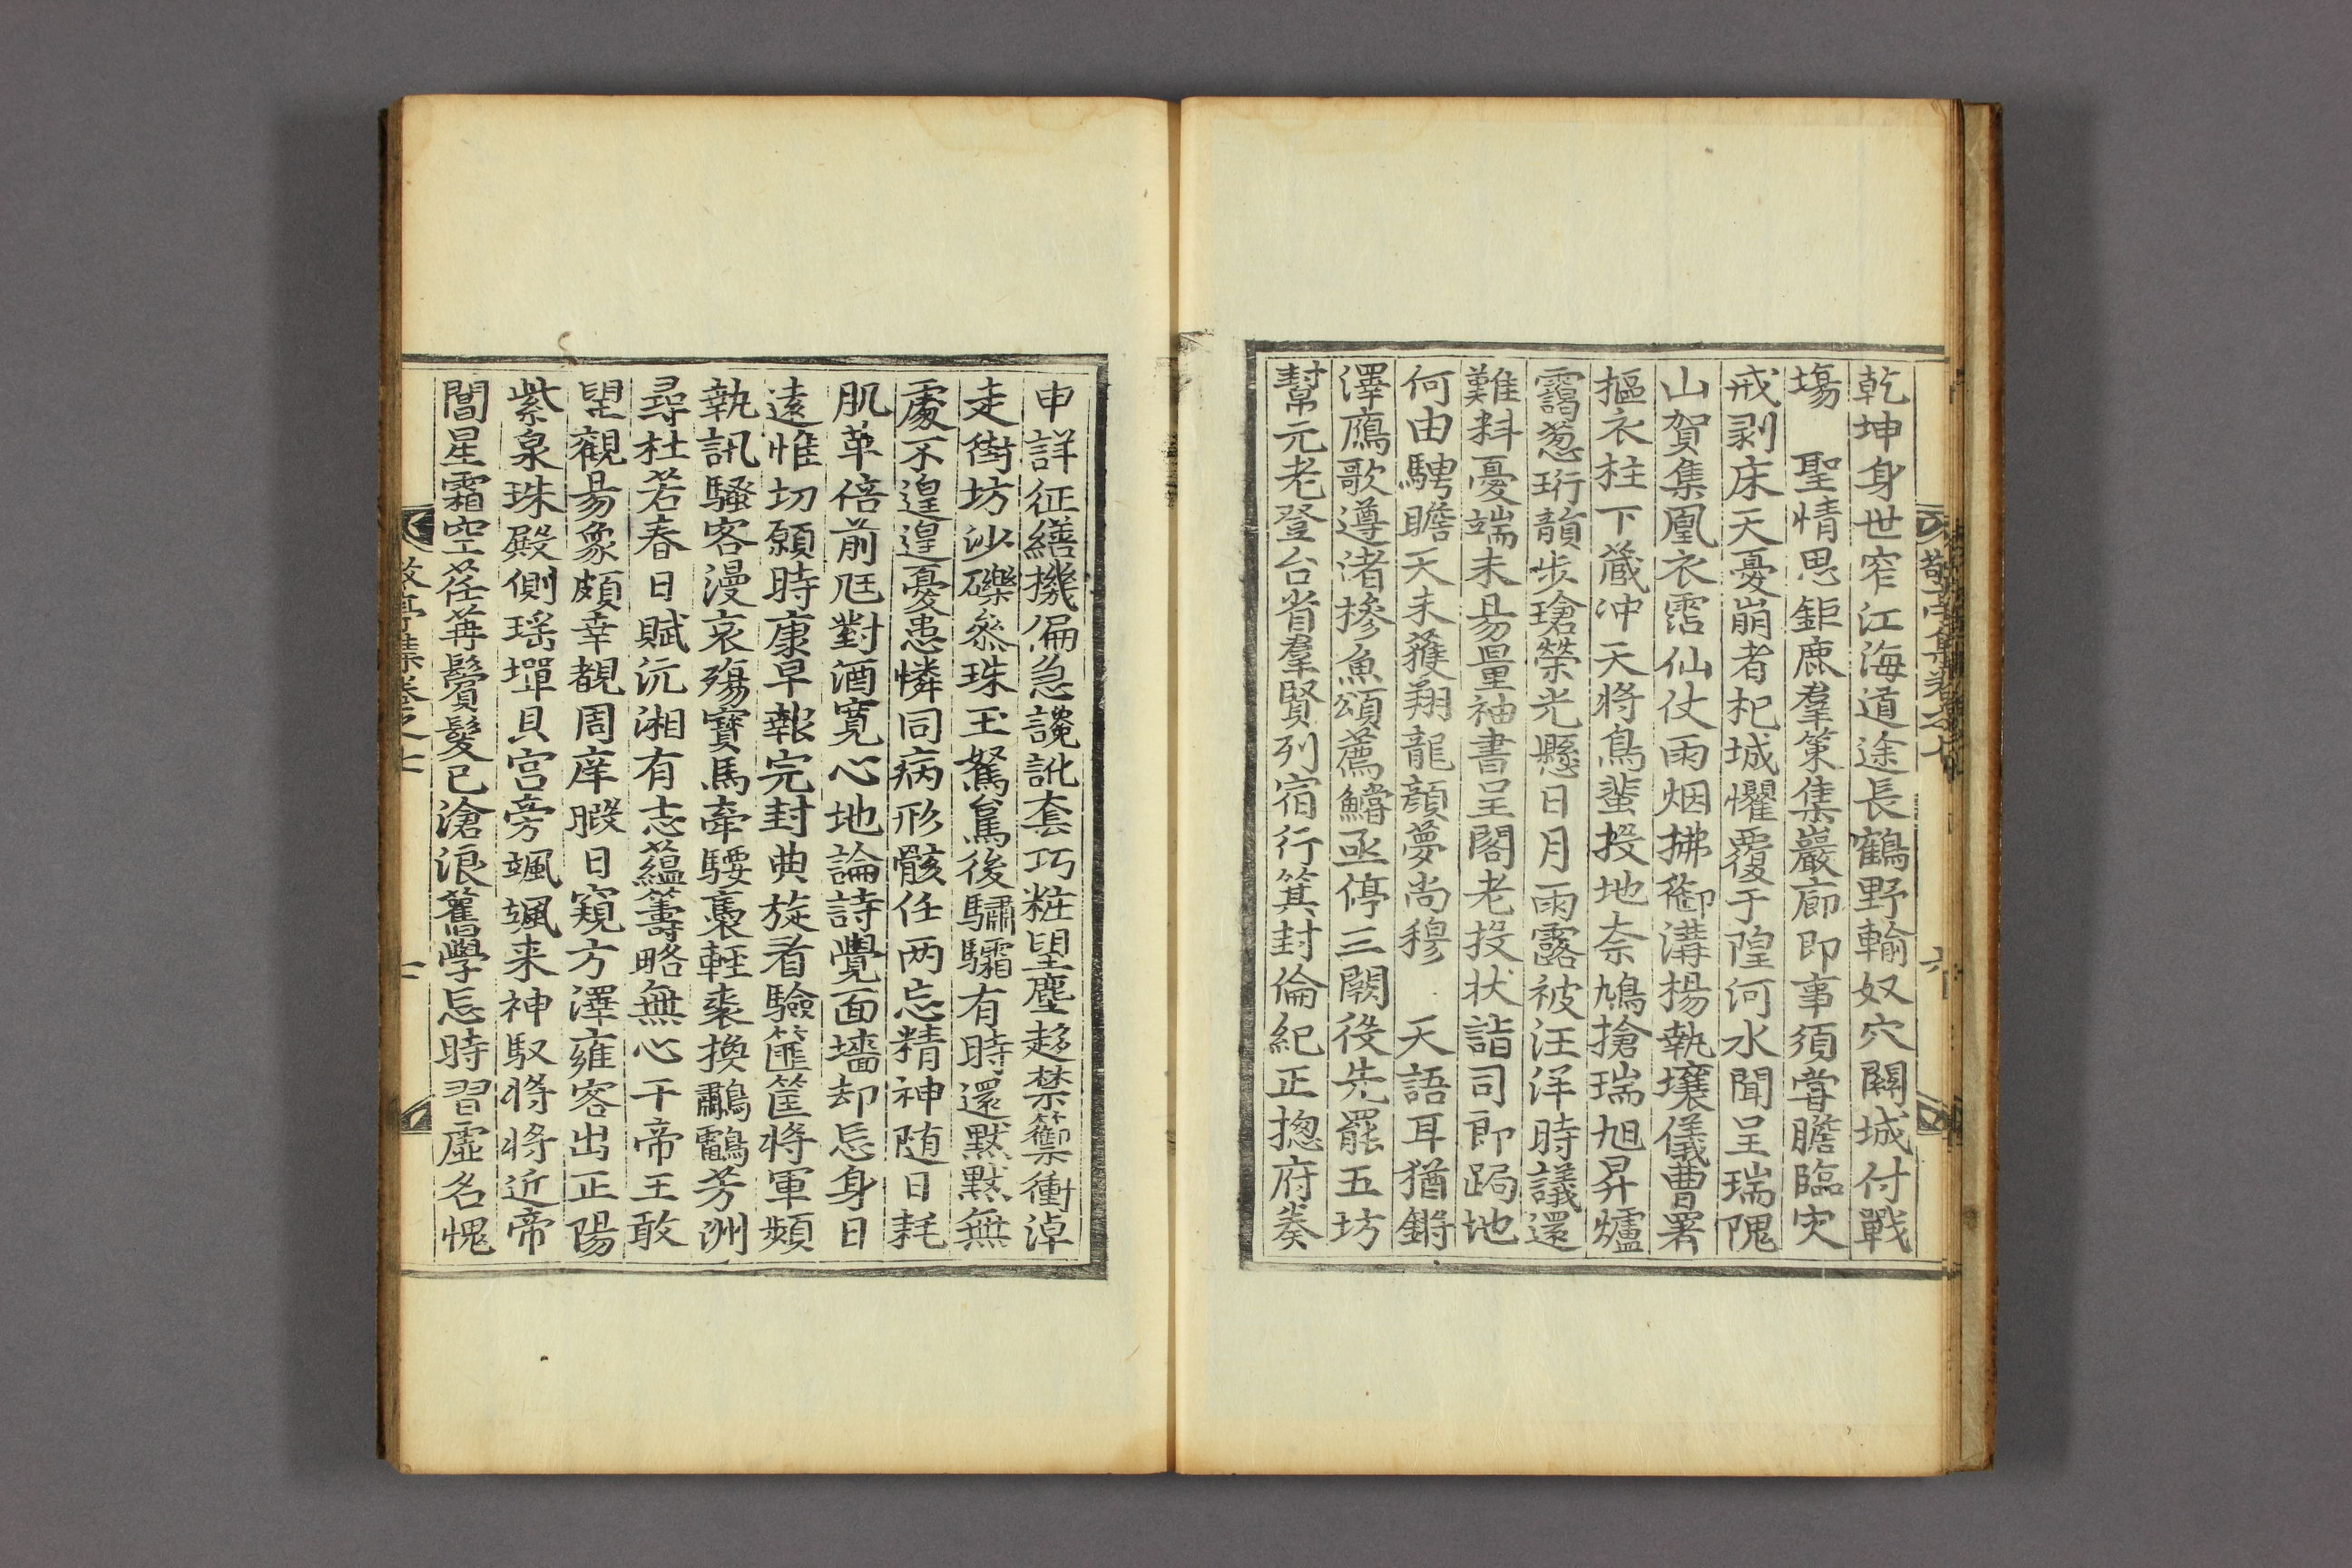 乾坤身世窄江海道途長鶴野輸奴穴關城付戰
塲　聖情思鉅鹿羣策集巖廊即事須甞膽臨灾
戒剥床天憂崩者杞城懼覆于隍河水聞呈瑞隗
山賀集凰衣霑仙仗雨烟拂御溝楊執壤儀曹署
摳衣柱下藏冲天將鳥蜚投地奈鳩搶瑞旭昇爐
靄葱珩韻步瑲榮光懸日月雨露被汪洋時議還
難料憂端未易量袖書呈閣老投状詣司郎跼地
何由騁瞻天未獲翔龍顔夢尚穆　天語耳猶鏘
澤鴈歌遵渚摻魚頌薦鱨亟停三闕役先罷五坊
幇元老登台省羣賢列宿行箕封倫紀正揔府奏
申詳征繕機偏急讒訛套巧粧望塵趍禁籞衝淖
走街坊沙礫叅珠玉駑駘後驌驦有時還黙黙無
處不遑遑憂患憐同病形骸任两忘精神随日耗
肌革倍前尫對酒寛心地論詩覺面墻却忘身日
遠惟切願時康早報完封典旋看驗篚筐將軍頻
執訊騷客漫哀殤寳馬牽騕褭輕裘換鸘芳洲
尋杜若春日賦沅湘有志蘊籌略無心干帝王敢
望觀易象頗幸覩周庠暇日窺方澤雍容出正陽
紫泉珠殿側瑶墠貝宮旁颯颯来神馭將將近帝
閶星霜空荏苒鬢髮已滄浪舊學忘時習虛名愧